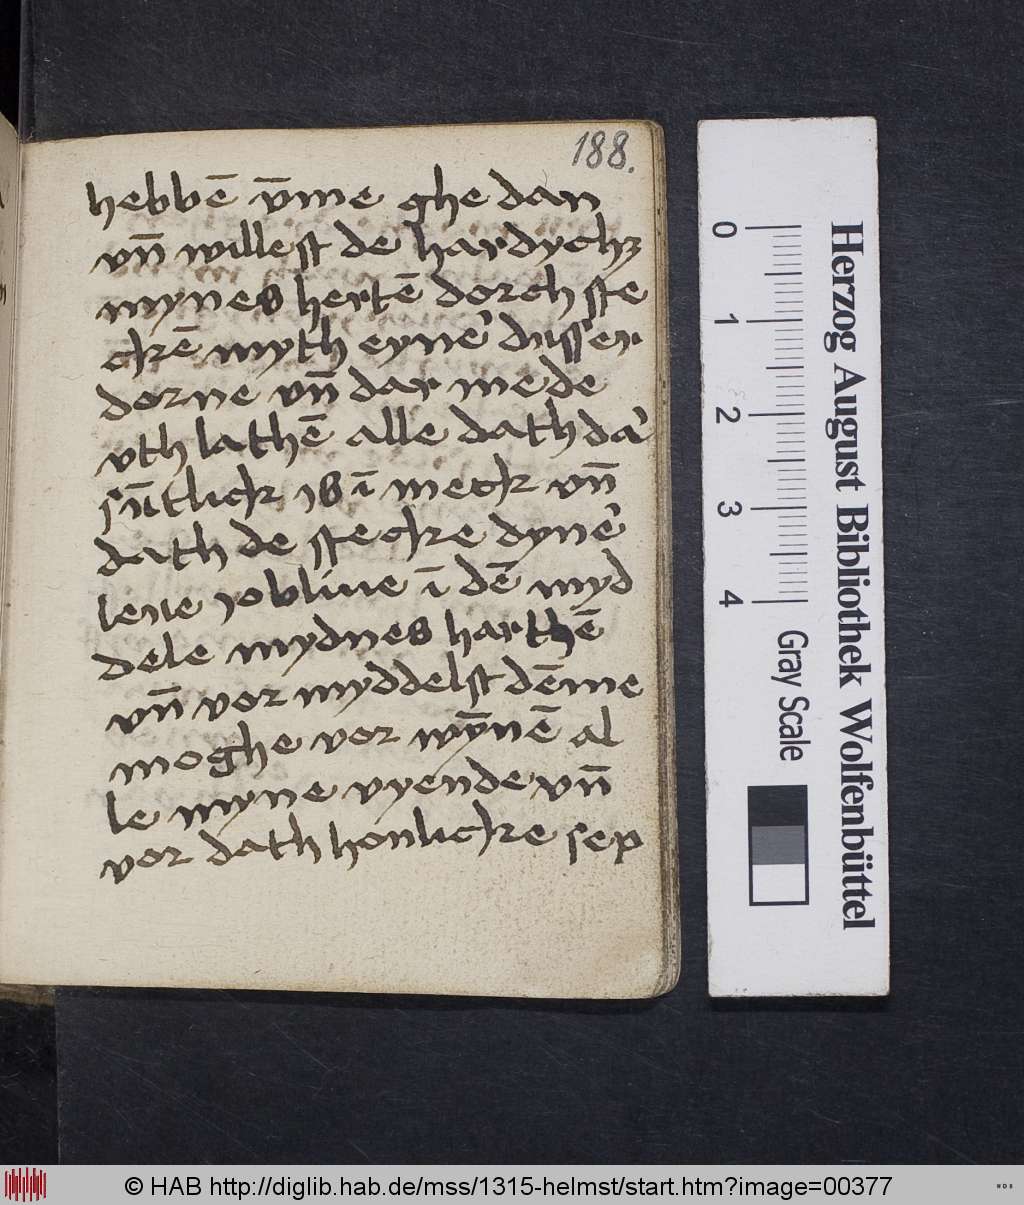 188.
hebbē v̄me ghe dan
vn̄ willest de hardychʒ
mynes hertē dorch ste
ckē myth eyne' dusser
dorne vn̄ dar mede
vth lathē alle dath da'
sūtlick is ī meck vn̄
dath de stecke dyne'
leue īobliue ī dē myd
dele mydnes harthē
vn̄ vor myddelst dēme
moghe vor wȳnē al
le myne vyende vn̄
vor dath honlicke sep
Herzog August Bibliothek Wolfenbüttel
0 1 2 3 4
Gray Scale
© HAB http://diglib.hab.de/mss/1315-helmst/start.htm?image=00377